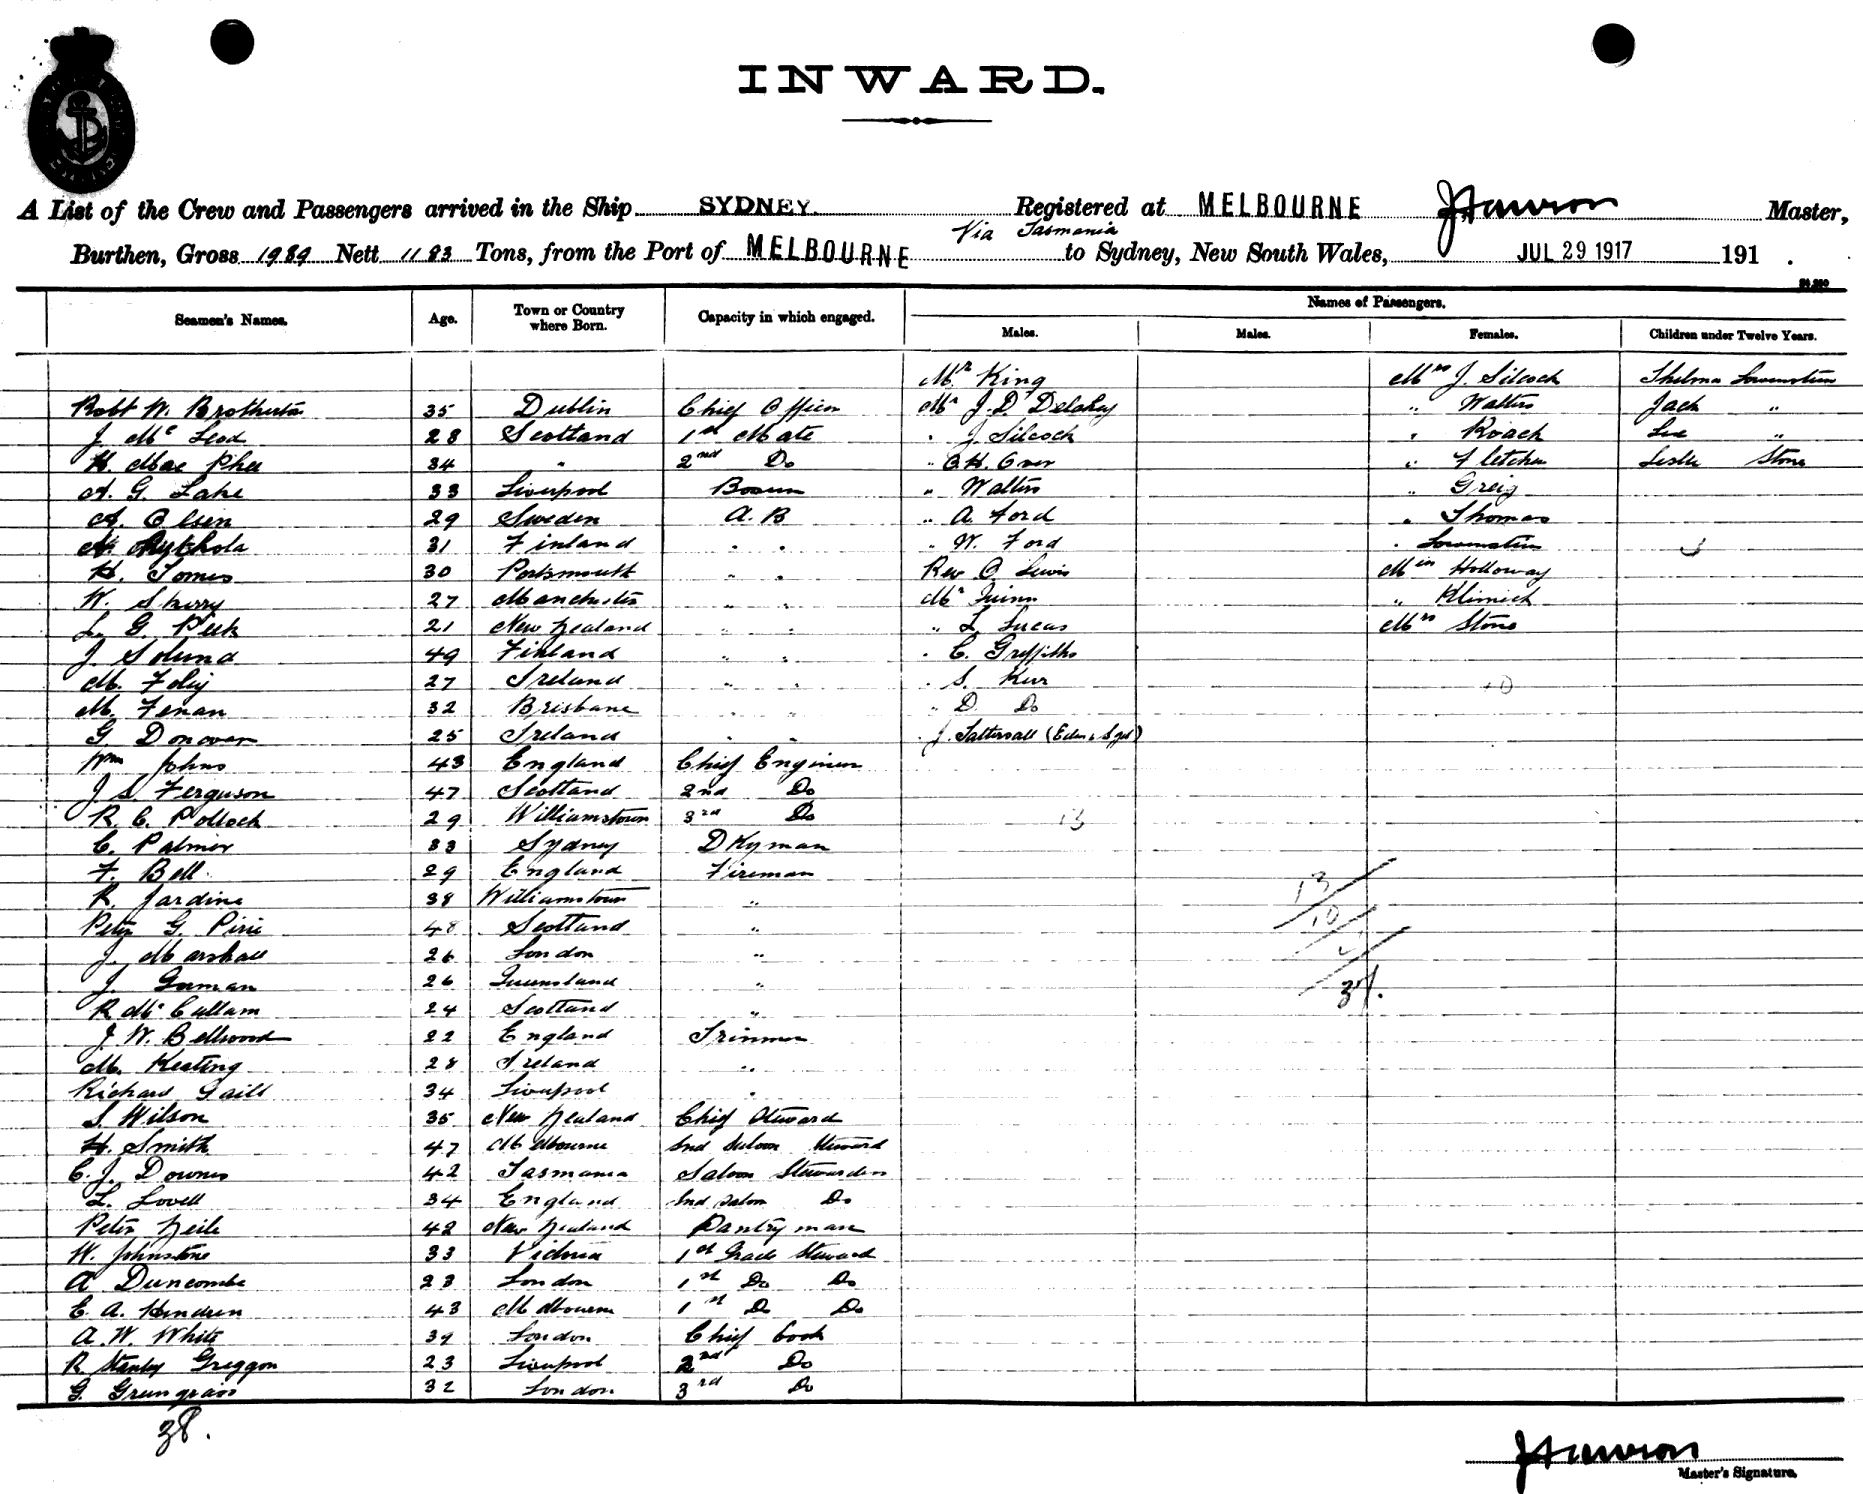 INWARD.
A List of the Crew and Passengers arrived in the Ship SYDNEY. Registered at MELBOURNE Master,
Via Tasmania
Burthen, Gross 1989 Nett 1183 Tons, from the Port of MELBOURNE to Sydney, New South Wales, JUL 29 1917 191 .
Names of Passengers.
Seamen's Names. Age. Town or Country where Born. Capacity in which engaged. Males. Males. Females. Children under Twelve Years.
Mr King Mrs J. Silcock Thelma Lowenstein
Robt W. Brotherton 35 Dublin Chief Officer Mr J. D. Delahey " Walters Jack "
J. Mc Leod 28 Scotland 1st Mate " J. Silcock " Roach "
H. Mac Phee 34 " 2nd Do " Over " Fletcher Leslie Stone
A. G. Lake 33 Liverpool Bosun " Walters " Greig
A. Olsen 29 Sweden A.B " A. Ford " Thomas
31 Finland " " " W. Ford " Lowenstein
H. Tomes 30 Portsmouth " " Rev O. Lewis Miss Holloway
W. Sherry 27 Manchester " " Mr Quinn " Klimich
L. G. Peek 21 New Zealand " " " L Lucas Mrs Stone
J. Solund 49 Finland " " " C. Griffiths
M. Foley 27 Ireland " " " S. Kerr 10
M. Fenan 32 Brisbane " " " D. Do
G Donovan 25 Ireland " " " J. Tattersall (Eden & Syd)
Wm Johns 43 England Chief Engineer
J S. Ferguson 47 Scotland 2nd Do
R C. Pollock 29 Williamstown 3rd Do 13
C. Palmer 33 Sydney DKyman
F. Bell 29 England Fireman
R. Jardine 38 Williamstown " 13
Peter G. Pirie 48 Scotland " 10
J. Marshall 26 London "
J. Gorman 26 Queensland "
R Mc Callam 24 Scotland "
J. W. Bellwood 22 England Trimmer
M. Keating 28 Ireland "
Richard Gaill 34 Liverpool "
S. Wilson 35 New Zealand Chief Steward
H. Smith 47 Melbourne 2nd Saloon Steward
C. J. Downes 42 Tasmania Saloon Stewardess
L. Lovell 34 England 2nd Saloon Do
Peter Neile 42 New Zealand Pantryman
W. Johnstone 33 Victoria 1st Grade Steward
A Duncombe 23 London 1st Do Do
E. A. Hendren 43 Melbourne 1st Do Do
A. W. White 39 London Chief Cook
R Stanley Greggon 23 Liverpool 2nd Do
G. Greengrass 32 London 3rd Do
38.
Master's Signature.